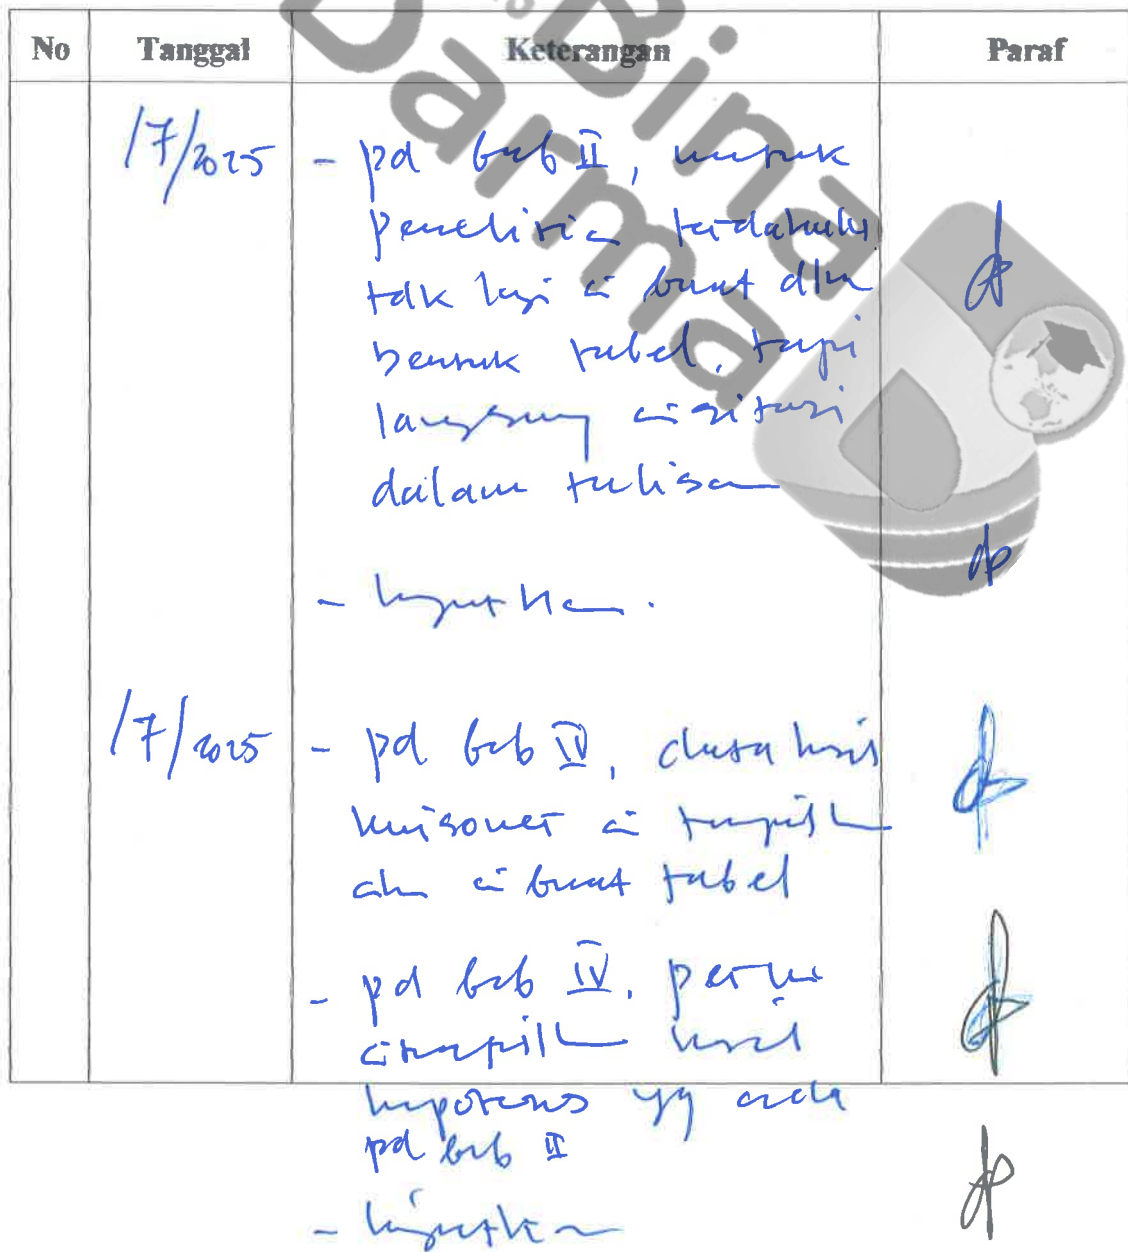 Bina
Darma
No Tanggal Keterangan Paraf
/7/2025 - pd bab II, untuk
penelitian terdahulu
tdk lagi di buat dlm
bentuk tabel, tapi
langsung disitasi
dalam tulisan
- lanjutkan.
/7/2025 - pd bab IV, data hasil
kuisoner di tampilkan
dan di buat tabel
- pd bab IV, perlu
ditampilkan hasil
hipotesis yg ada
pd bab II
- lanjutkan